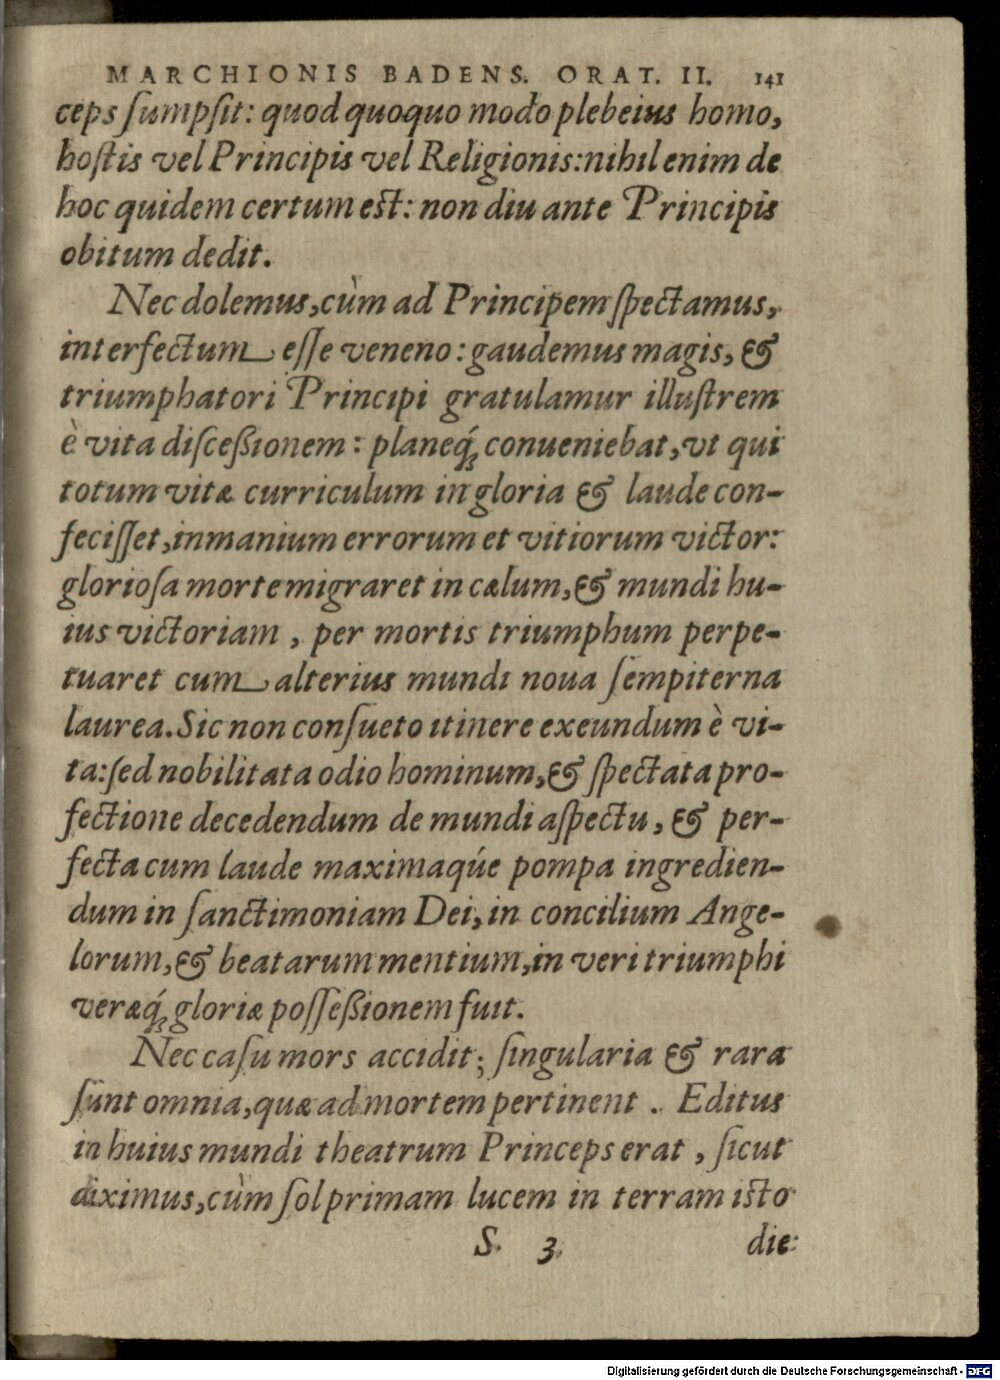 MARCHIONIS BADENS. ORAT. II. 141
ceps ſumpſit: quod quoquo modo plebeius homo,
hoſtis vel Principis vel Religionis: nihil enim de
hoc quidem certum est: non diu ante Principis
obitum dedit.
Nec dolemus, cùm ad Principem ſpectamus,
interfectum eſſe veneno: gaudemus magis, &
triumphatori Principi gratulamur illuſtrem
è vita diſceßionem: planeq́ꝫ conueniebat, vt qui
totum vitæ curriculum in gloria & laude con-
feciſſet, inmanium errorum et vitiorum victor:
glorioſa morte migraret in cælum, & mundi hu-
ius victoriam, per mortis triumphum perpe-
tuaret cum alterius mundi noua ſempiterna
laurea. Sic non conſueto itinere exeundum è vi-
ta: ſed nobilitata odio hominum, & ſpectata pro-
fectione decedendum de mundi aſpectu, & per-
fecta cum laude maximaqúe pompa ingredien-
dum in ſanctimoniam Dei, in concilium Ange-
lorum, & beatarum mentium, in veri triumphi
veræq́ꝫ gloriæ poſſeßionem fuit.
Nec caſu mors accidit; ſingularia & rara
ſunt omnia, quæ ad mortem pertinent. Editus
in huius mundi theatrum Princeps erat, ſicut
diximus, cùm ſol primam lucem in terram isto
S 3 die:
Digitalisierung gefördert durch die Deutsche Forschungsgemeinschaft - DFG